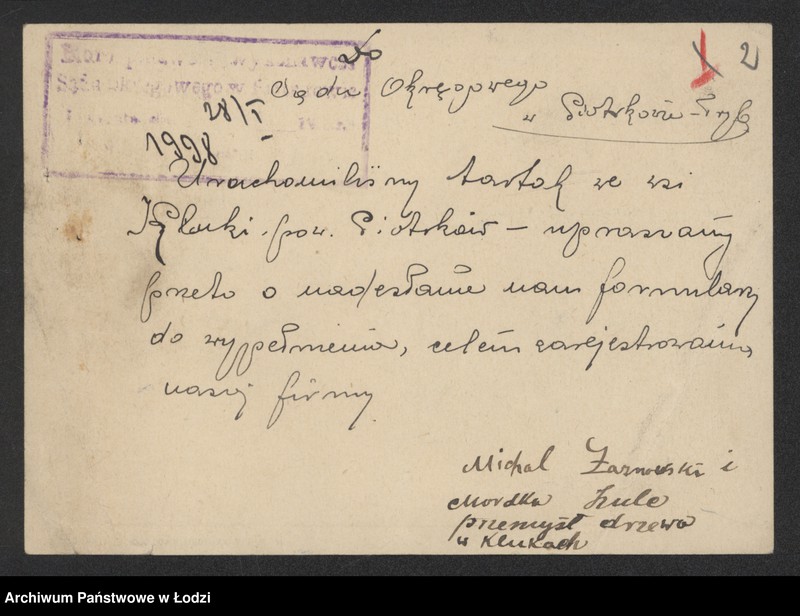 Do
Sądu Okręgowego
w Piotrkowie-Tryb
28/I
1998
1 2
Uruchomiliśmy tartak we wsi
Kluki pow. Piotrków – upraszamy
przeto o nadesłanie nam formularzy
do wypełnienia, celem zarejestrowania
naszej firmy
Michał Żarnowski i
Mordka Szulc
przemysł drzewa
w Klukach
Archiwum Państwowe w Łodzi